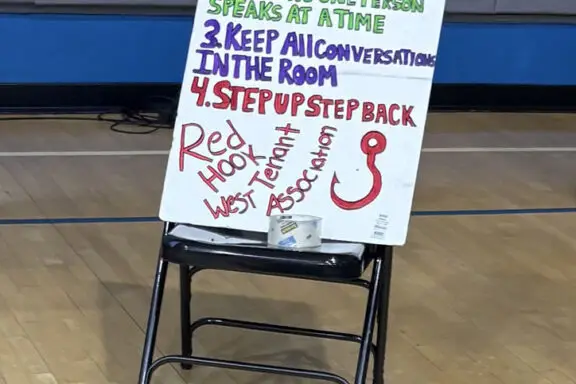 ONE PERSON
SPEAKS AT A TIME
3. KEEP All CONVERSATIONS
IN THE ROOM
4. STEP UP STEP BACK
Red
HOOK
WEST Tenant
Association